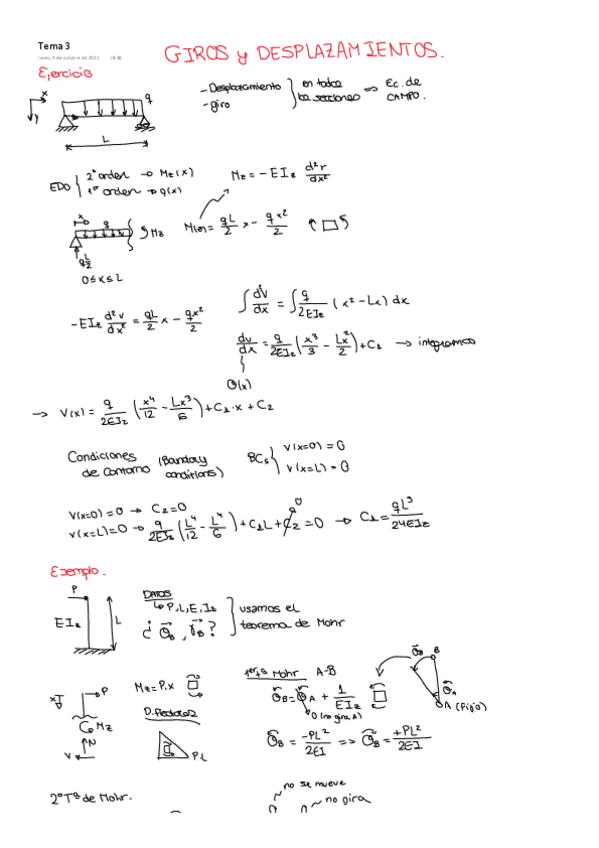 Tema 3
GIROS y DESPLAZAMIENTOS.
Ejercicio
- Desplazamiento
- giro
en todas
las secciones
⇒ Ec. de
CAMPO.
x
y
q
L
EDO { 2º orden → Mz(x)
1er orden → q(x)
Mz = -EIz d²v/dx²
x
q
Mz
qL/2
0≤x≤L
M(x) = qL/2 x - qx²/2
-EIz d²v/dx² = qL/2 x - qx²/2
∫ dv/dx = ∫ q/2EIz (x² - Lx) dx
dv/dx = q/2EIz (x³/3 - Lx²/2) + C1 → integramos
θ(x)
→ V(x) = q/2EIz (x⁴/12 - Lx³/6) + C1·x + C2
Condiciones
de Contorno
(Boundary
conditions)
BCs { v(x=0) = 0
v(x=L) = 0
V(x=0) = 0 → C2=0
v(x=L)=0 → q/2EIz (L⁴/12 - L⁴/6) + C1L + C2 = 0 → C1 = qL³/24EIz
0
Ejemplo.
P
EIz
L
DATOS
P, L, E, Iz
¿ θB, rB ?
usamos el
teorema de Mohr
x
P
Mz
N
V
Mz = P.x
P.L
1er Tª Mohr A-B
θB = θA + 1/EIz
0 (no gira A)
θB
B
θA
A (Fijo)
θB = -PL²/2EI => θB = +PL²/2EI
no se mueve
no gira
2º Tª de Mohr.